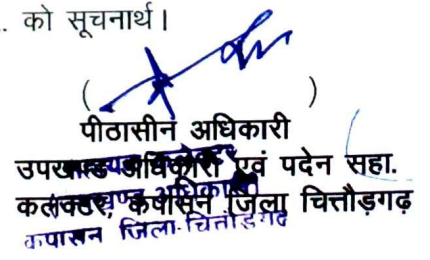 .. को सूचनार्थ।
( )
पीठासीन अधिकारी
उपखण्ड अधिकारी एवं पदेन सहा.
कलक्टर, कपासन जिला चित्तौड़गढ़
कपासन जिला-चित्तौड़गढ